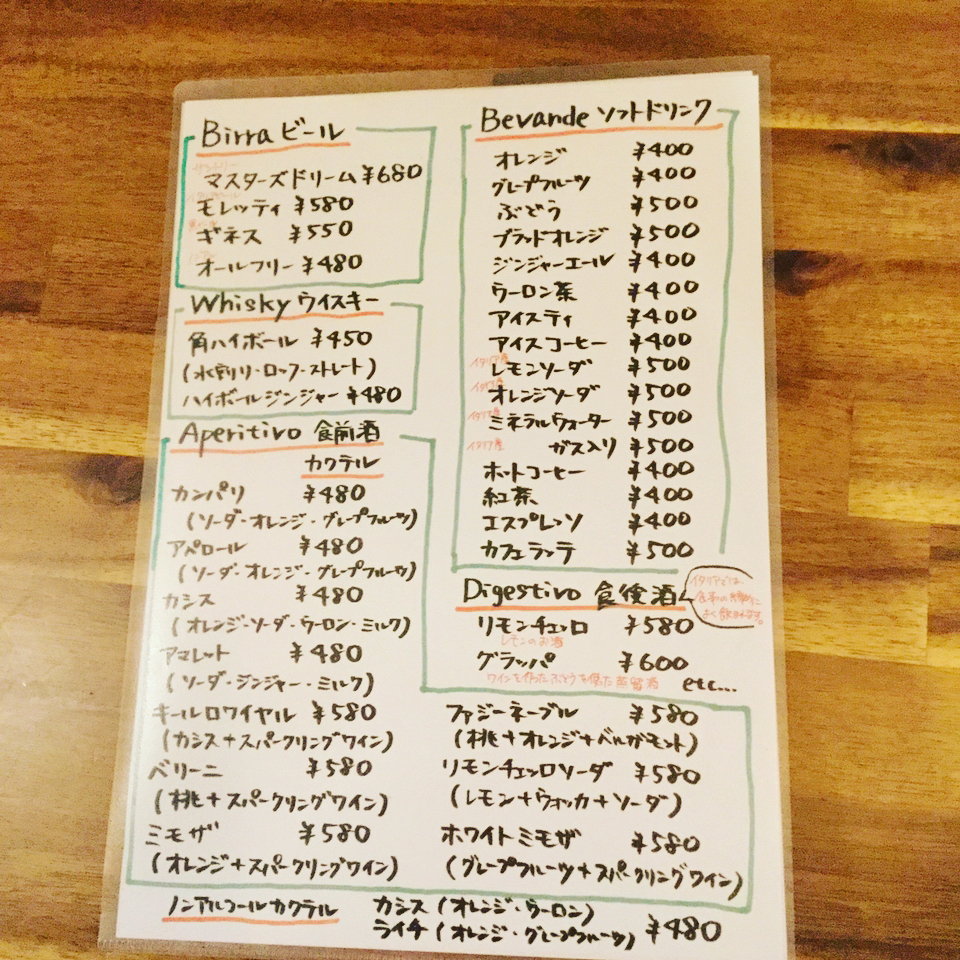 Birra ビール
マスターズドリーム ¥680
モレッティ ¥580
ギネス ¥550
オールフリー ¥480
Whisky ウイスキー
角ハイボール ¥450
(水割り・ロック・ストレート)
ハイボールジンジャー ¥480
Aperitivo 食前酒
カクテル
カンパリ ¥480
(ソーダ・オレンジ・グレープフルーツ)
アペロール ¥480
(ソーダ・オレンジ・グレープフルーツ)
カシス ¥480
(オレンジ・ソーダ・ウーロン・ミルク)
アマレット ¥480
(ソーダ・ジンジャー・ミルク)
キールロワイヤル ¥580
(カシス+スパークリングワイン)
ベリーニ ¥580
(桃+スパークリングワイン)
ミモザ ¥580
(オレンジ+スパークリングワイン)
Bevande ソフトドリンク
オレンジ ¥400
グレープフルーツ ¥400
ぶどう ¥500
ブラッドオレンジ ¥500
ジンジャーエール ¥400
ウーロン茶 ¥400
アイスティ ¥400
アイスコーヒー ¥400
イタリア産
レモンソーダ ¥500
イタリア産
オレンジソーダ ¥500
イタリア産
ミネラルウォーター ¥500
イタリア産
ガス入り ¥500
ホットコーヒー ¥400
紅茶 ¥400
エスプレッソ ¥400
カフェラッテ ¥500
Digestivo 食後酒
イタリアでは、
よく飲みます。
リモンチェッロ ¥580
レモンのお酒
グラッパ ¥600
ワインを作ったぶどうを使た蒸留酒
etc...
ファジーネーブル ¥580
(桃+オレンジ+ベルガモット)
リモンチェッロソーダ ¥580
(レモン+ウォッカ+ソーダ)
ホワイトミモザ ¥580
(グレープフルーツ+スパークリングワイン)
ノンアルコールカクテル
カシス (オレンジ・ウーロン)
ライチ (オレンジ・グレープフルーツ) ¥480